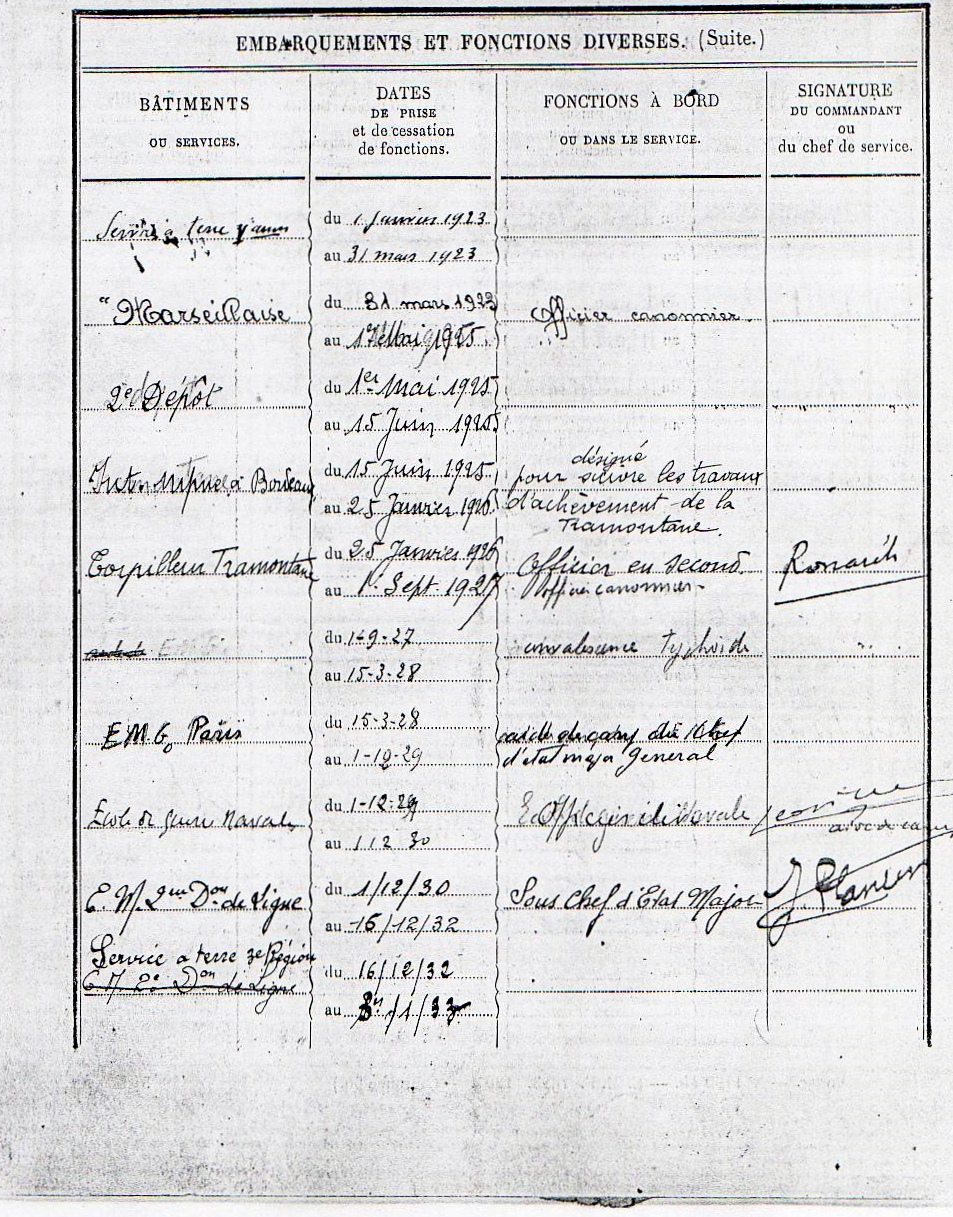 EMBARQUEMENTS ET FONCTIONS DIVERSES. (Suite.)
BÂTIMENTS
OU SERVICES.
DATES
DE PRISE
et de cessation
de fonctions.
FONCTIONS À BORD
OU DANS LE SERVICE.
SIGNATURE
DU COMMANDANT
ou
du chef de service.
à terre
du 1 Janvier 1923
au 31 mars 1923
"Marseillaise
du 31 mars 1923
Officier canonnier
au 1925
2e Dépôt
du 1er Mai 1925
au 15 Juin 1925
à Bordeaux
du 15 Juin 1925
au 25 Janvier 1926
désigné
pour suivre les travaux
d'achèvement de la
Tramontane.
Torpilleur Tramontane
du 25 Janvier 1926
au 1er Sept. 1927
Officier en second
officier canonnier
Ronarc'h
E.M.G.
du 1-9-27
au 15-3-28
convalescence typhoïde
"
E M G Paris
du 15-3-28
au 1-12-29
du Chef
d'état major général
Ecole de guerre navale
du 1-12-29
au 1 12 30
Navale
E. M. 2ème Don de Ligne
du 1/12/30
au 16/12/32
Sous Chef d'Etat Major
Service à terre 3e Région
E. M. 2e Don de Ligne
du 16/12/32
au /1/33